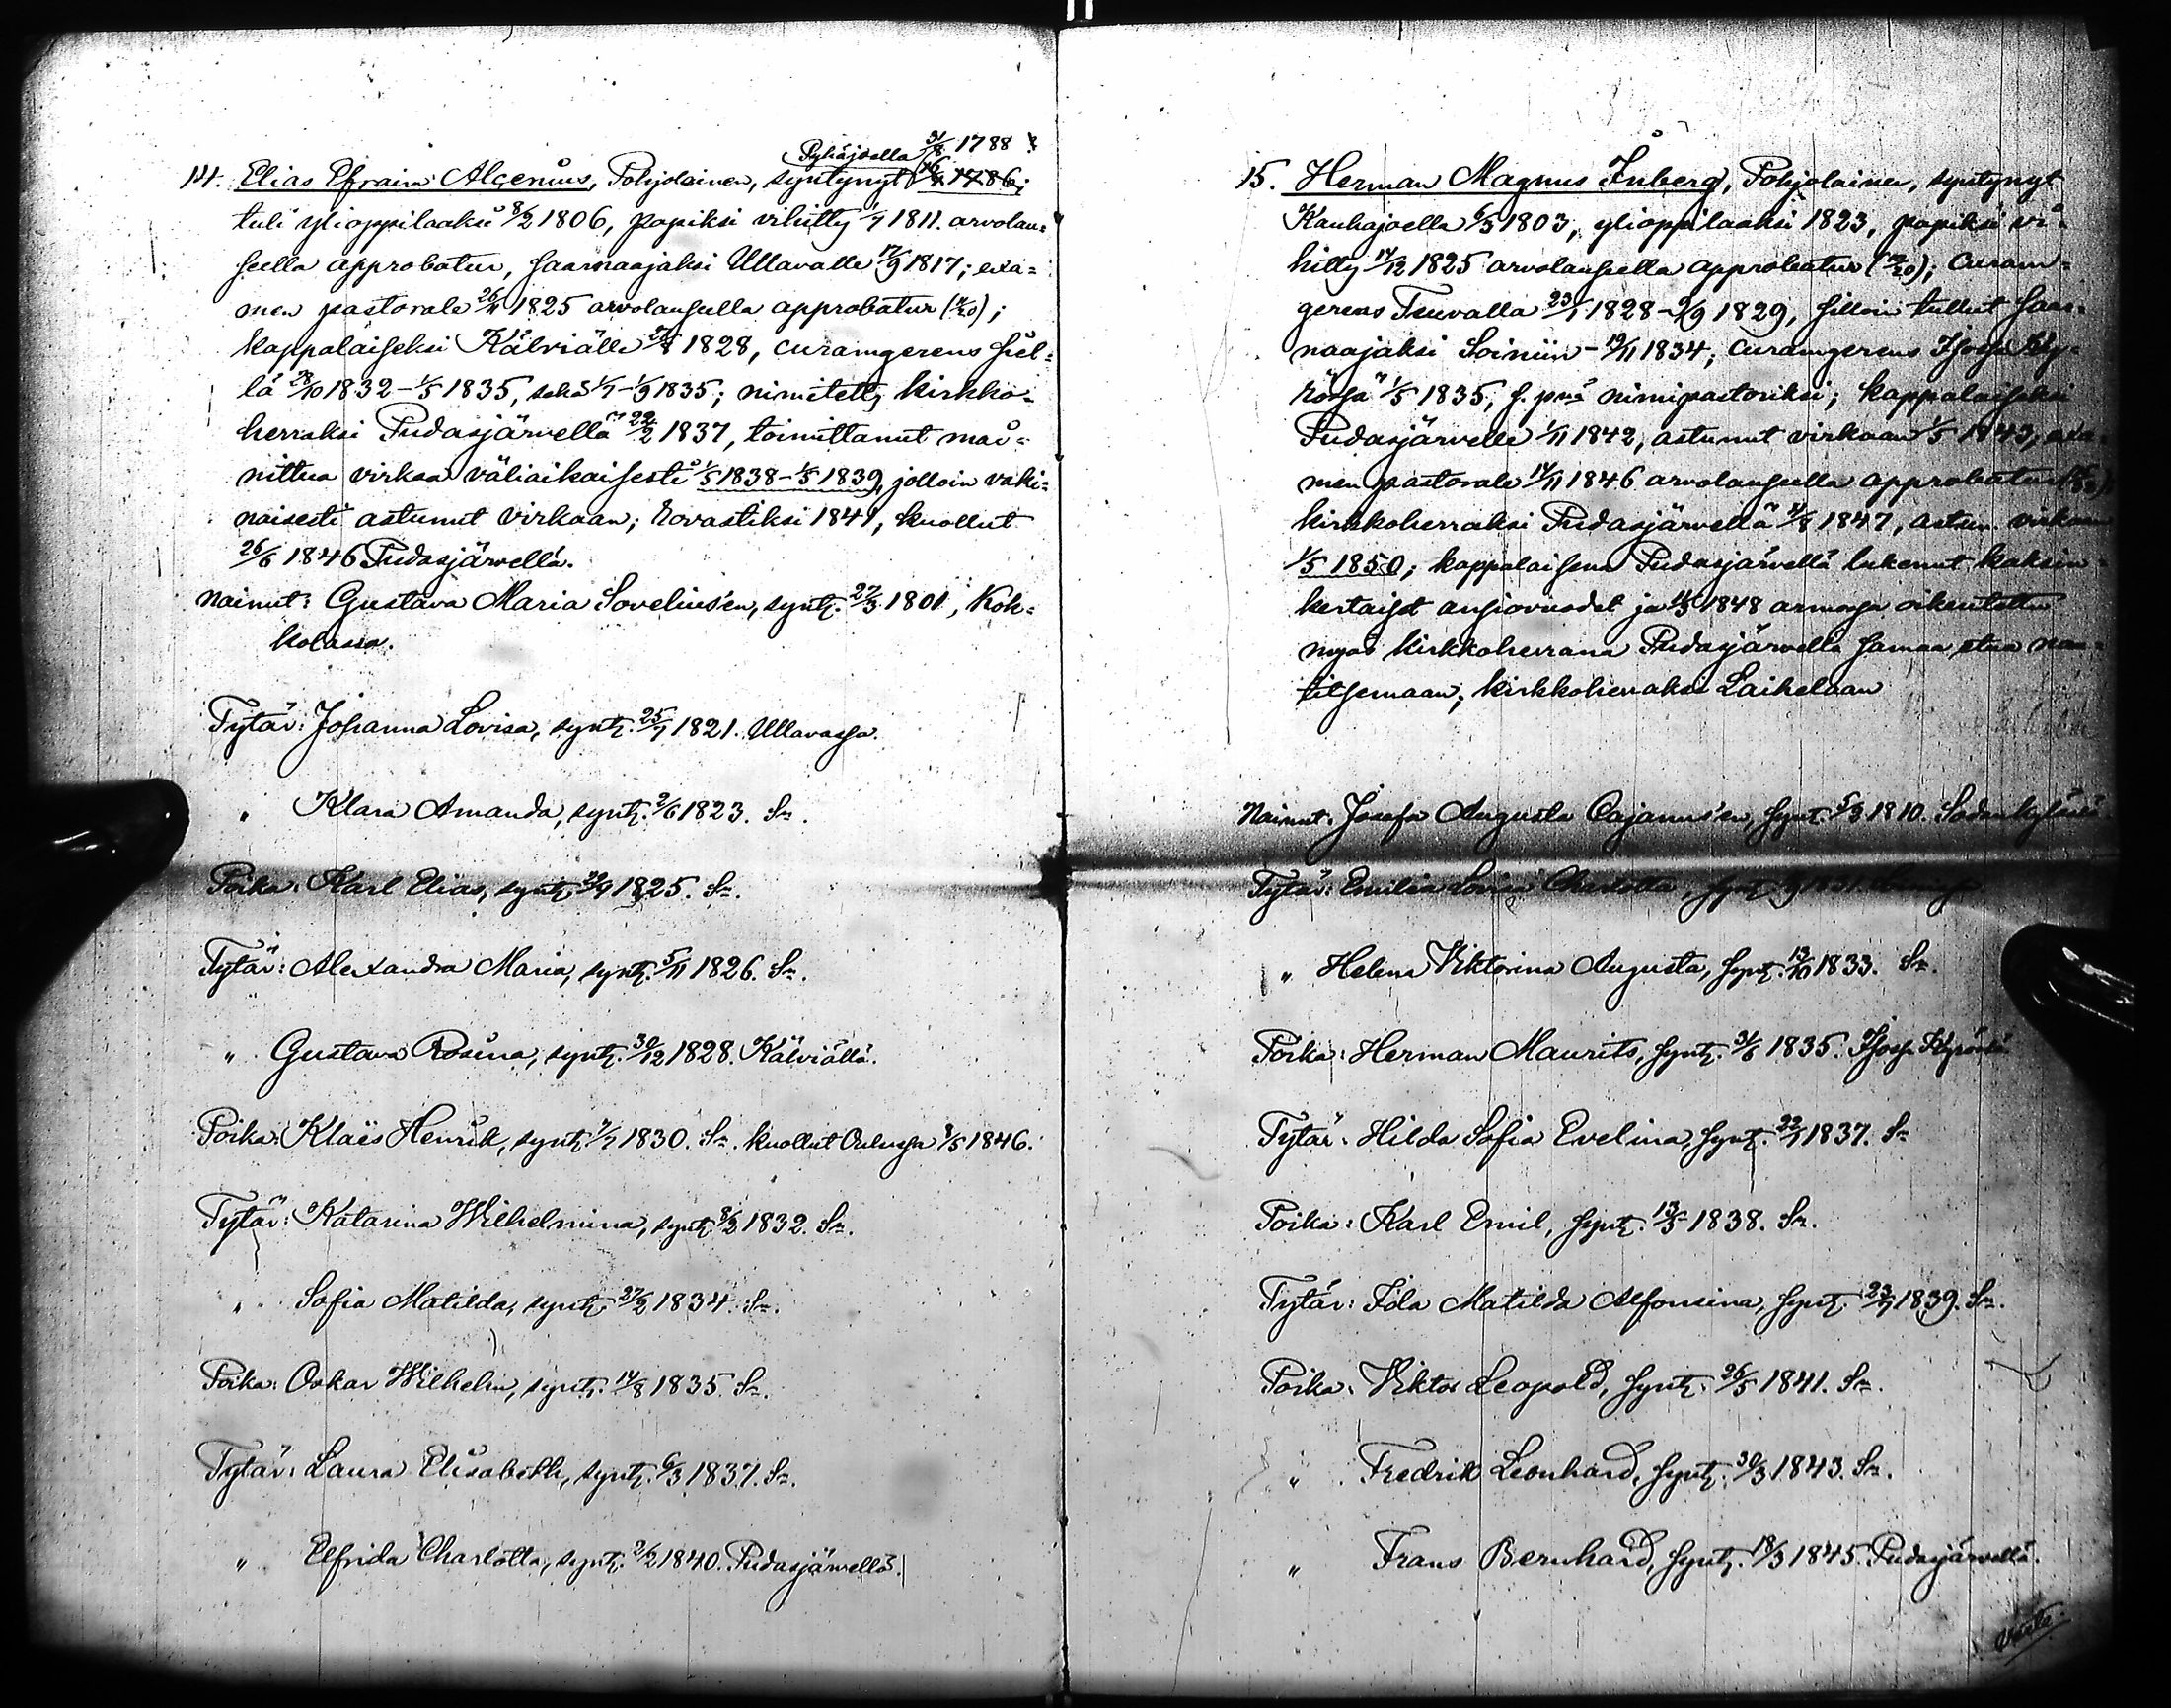 Pyhäjoella 31/8 1788
14. Elias Efraim Alcenius, Pohjolainen, syntynyt 1786;
tuli ylioppilaaksi 8/2 1806, papiksi vihitty 1/7 1811. arvolau=
seella approbatur, saarnaajaksi Ullavalle 17/9 1817; exa=
men pastorale 26/11 1825 arvolausella approbatur (/20);
kappalaiseksi Kälviälle 1828, curamgerens siel=
lä 28/10 1832 – 1/5 1835, sekä 1/7 – 1/9 1835; nimitetty kirkko=
herraksi Pudasjärvellä 22/2 1837, toimittanut mai=
nittua virkaa väliaikaisesti 1/5 1838 – 1/5 1839, jolloin vaki=
naisesti astunut virkaan; rovastiksi 1841, kuollut
26/6 1846 Pudasjärvellä.
Nainut: Gustava Maria Sovelius'en, synt. 27/3 1801, Kok=
kolassa.
Tytär: Johanna Lovisa, synt. 25/7 1821. Ullavassa.
„ Klara Amanda, synt. 2/6 1823. S:a.
Poika: Karl Elias, synt. 1825. S:a.
Tytär: Alexandra Maria, synt. 5/11 1826. S:a.
„ Gustava Rosina, synt. 30/12 1828. Kälviällä.
Poika: Klaës Henrik, synt. 7/7 1830. S:a. kuollut Oulussa 8/5 1846.
Tytär: Katarina Wilhelmina, synt. 8/2 1832. S:a.
„ Sofia Matilda, synt. 27/2 1834. S:a.
Poika: Oskar Wilhelm, synt. 14/8 1835. S:a.
Tytär: Laura Elisabeth, synt. 6/3 1837. S:a.
„ Elfrida Charlotta, synt. 2/2 1840. Pudasjärvellä.
15. Herman Magnus Inberg, Pohjolainen, syntynyt
Kauhajoella 6/5 1803, ylioppilaaksi 1823, papiksi vi=
hitty 14/12 1825 arvolauseella approbatur (/20); curam=
gerens Teuvalla 23/1 1828 – /9 1829, silloin tullut saar=
naajaksi Soiniin – 19/11 1834; curamgerens Isossa Ky=
rössä 1/5 1835, s. p:nä nimipastoriksi; kappalaiseksi
Pudasjärvelle 1/11 1842, astunut virkaan 1/5 1843; exa
men pastorale 14/11 1846 arvolausella approbatur
kirkkoherraksi Pudasjärvellä 11/8 1847, astun. virkaan
1/5 1850; kappalaisena Pudasjärvellä lukenut kaksin=
kertaiset ansiovuodet ja 1848 armossa oikeutettu
myös kirkkoherrana Pudasjärvellä samaa etua nau=
titsemaan; kirkkoherraksi Laihelaan
Nainut: Josefa Augusta Cajanus'en, synt. 5/3 1810. Sodankylässä
Tytär: Emilia Lovisa Charlotta, synt.
„ Helena Viktorina Augusta, synt. 13/10 1833. S:a.
Poika: Herman Maurits, synt. 31/6 1835. Isossa Kyrössä
Tytär: Hilda Sofia Evelina, synt. 22/1 1837. S:a
Poika: Karl Emil, synt. 13/5 1838. S:a.
Tytär: Ida Matilda Alfonsina, synt. 23/7 1839. S:a.
Poika: Viktor Leopold, synt. 26/5 1841. S:a.
„ Fredrik Leonhard, synt. 30/3 1843. S:a.
„ Frans Bernhard, synt. 18/3 1845. Pudasjärvellä.